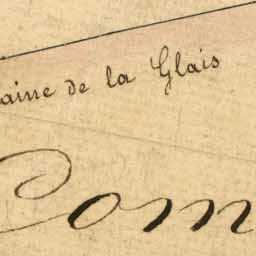 aine de la Glais
Com